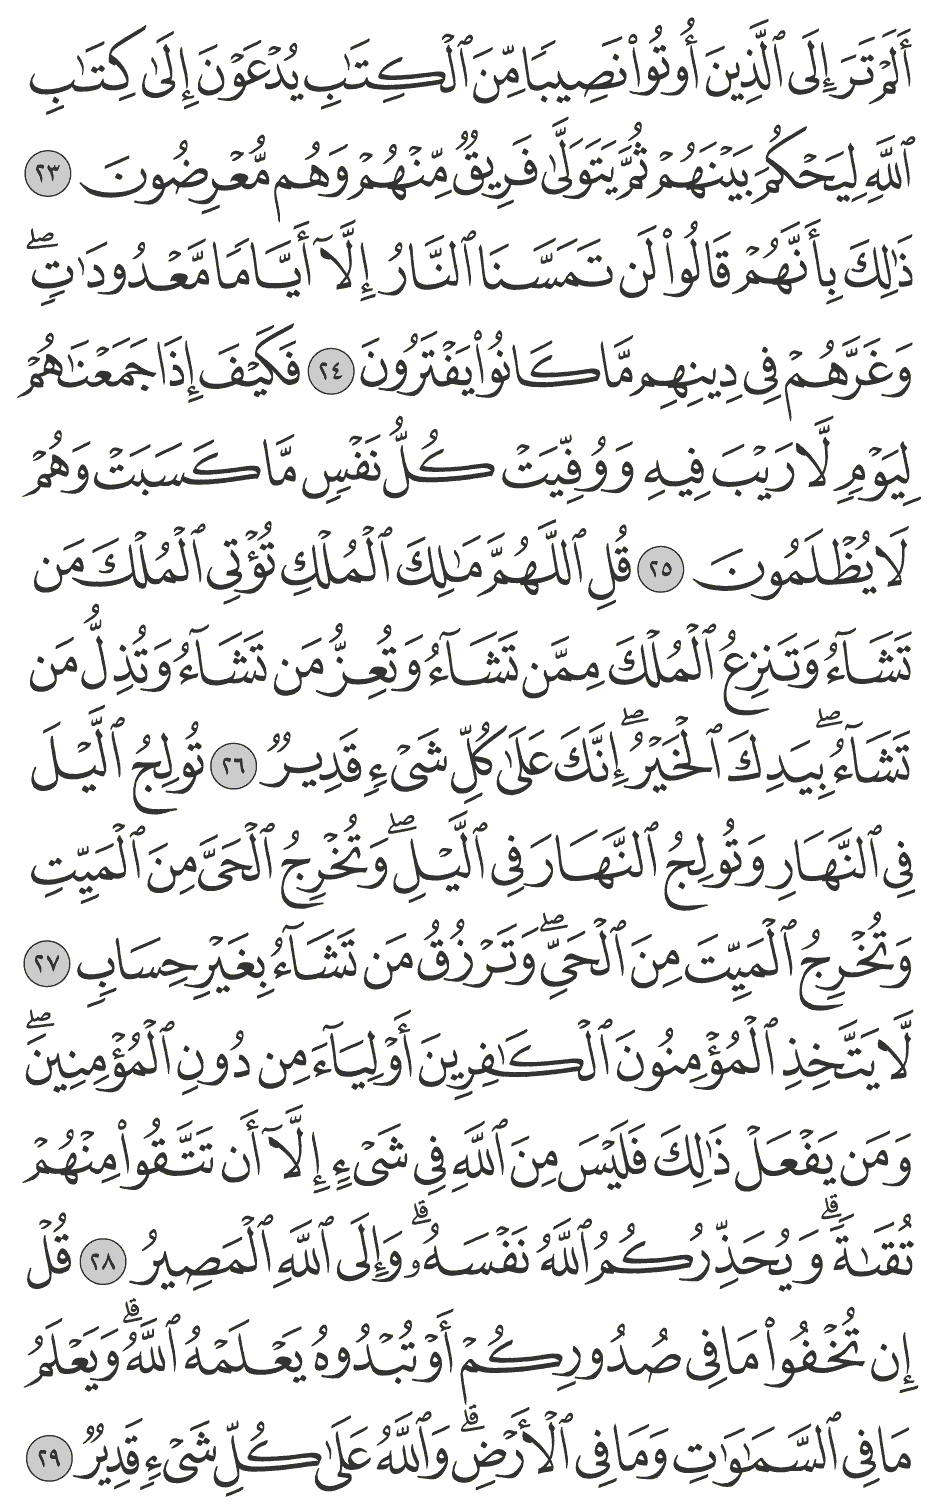 أَلَمْ تَرَ إِلَى ٱلَّذِينَ أُوتُوا۟ نَصِيبًا مِّنَ ٱلْكِتَـٰبِ يُدْعَوْنَ إِلَىٰ كِتَـٰبِ
ٱللَّهِ لِيَحْكُمَ بَيْنَهُمْ ثُمَّ يَتَوَلَّىٰ فَرِيقٌ مِّنْهُمْ وَهُم مُّعْرِضُونَ ٢٣
ذَٰلِكَ بِأَنَّهُمْ قَالُوا۟ لَن تَمَسَّنَا ٱلنَّارُ إِلَّآ أَيَّامًا مَّعْدُودَٰتٍ ۖ
وَغَرَّهُمْ فِى دِينِهِم مَّا كَانُوا۟ يَفْتَرُونَ ٢٤ فَكَيْفَ إِذَا جَمَعْنَـٰهُمْ
لِيَوْمٍ لَّا رَيْبَ فِيهِ وَوُفِّيَتْ كُلُّ نَفْسٍ مَّا كَسَبَتْ وَهُمْ
لَا يُظْلَمُونَ ٢٥ قُلِ ٱللَّهُمَّ مَـٰلِكَ ٱلْمُلْكِ تُؤْتِى ٱلْمُلْكَ مَن
تَشَآءُ وَتَنزِعُ ٱلْمُلْكَ مِمَّن تَشَآءُ وَتُعِزُّ مَن تَشَآءُ وَتُذِلُّ مَن
تَشَآءُ ۖ بِيَدِكَ ٱلْخَيْرُ ۖ إِنَّكَ عَلَىٰ كُلِّ شَىْءٍ قَدِيرٌ ٢٦ تُولِجُ ٱلَّيْلَ
فِى ٱلنَّهَارِ وَتُولِجُ ٱلنَّهَارَ فِى ٱلَّيْلِ ۖ وَتُخْرِجُ ٱلْحَىَّ مِنَ ٱلْمَيِّتِ
وَتُخْرِجُ ٱلْمَيِّتَ مِنَ ٱلْحَىِّ ۖ وَتَرْزُقُ مَن تَشَآءُ بِغَيْرِ حِسَابٍ ٢٧
لَّا يَتَّخِذِ ٱلْمُؤْمِنُونَ ٱلْكَـٰفِرِينَ أَوْلِيَآءَ مِن دُونِ ٱلْمُؤْمِنِينَ ۖ
وَمَن يَفْعَلْ ذَٰلِكَ فَلَيْسَ مِنَ ٱللَّهِ فِى شَىْءٍ إِلَّآ أَن تَتَّقُوا۟ مِنْهُمْ
تُقَىٰةً ۗ وَيُحَذِّرُكُمُ ٱللَّهُ نَفْسَهُۥ ۗ وَإِلَى ٱللَّهِ ٱلْمَصِيرُ ٢٨ قُلْ
إِن تُخْفُوا۟ مَا فِى صُدُورِكُمْ أَوْ تُبْدُوهُ يَعْلَمْهُ ٱللَّهُ ۗ وَيَعْلَمُ
مَا فِى ٱلسَّمَـٰوَٰتِ وَمَا فِى ٱلْأَرْضِ ۗ وَٱللَّهُ عَلَىٰ كُلِّ شَىْءٍ قَدِيرٌ ٢٩